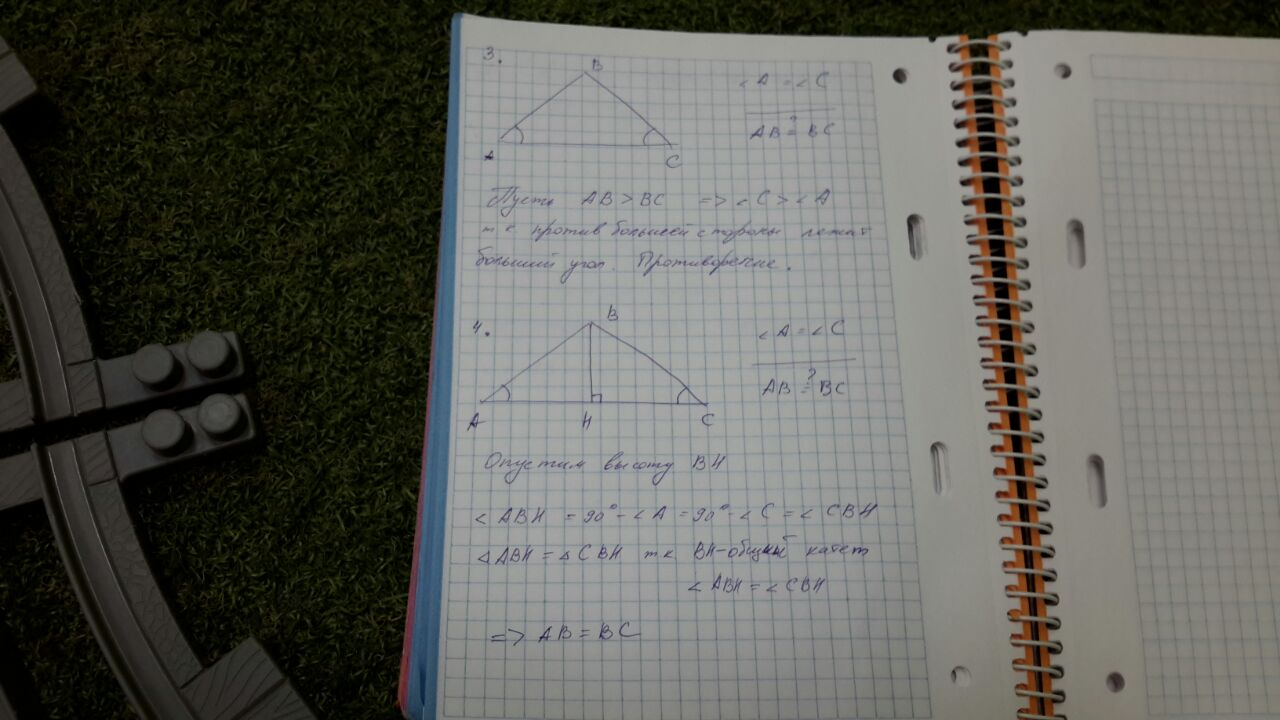 3.
B
A
C
∠A = ∠C
AB ≟ BC
Пусть AB > BC => ∠C > ∠A
т к против большей стороны лежит
больший угол. Противоречие.
4.
B
A
H
C
∠A = ∠C
AB ≟ BC
Опустим высоту BH
∠ABH = 90° - ∠A = 90° - ∠C = ∠CBH
△ABH = △CBH т.к BH-общий катет
∠ABH = ∠CBH
=> AB = BC